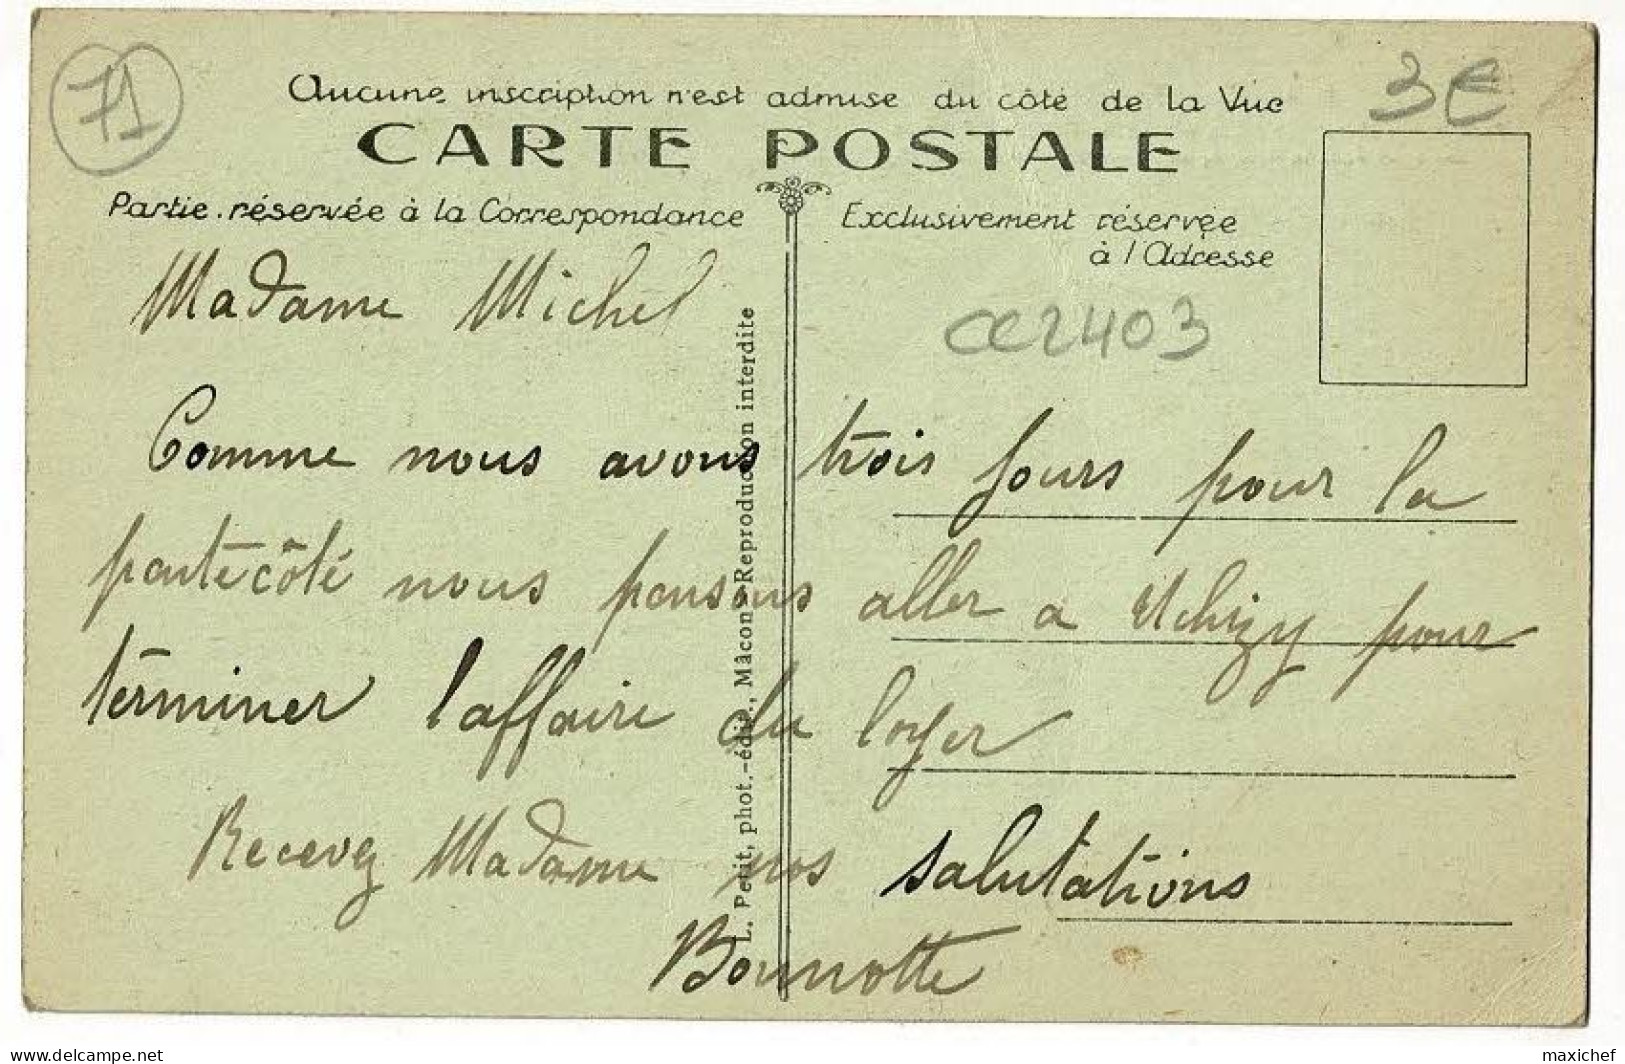 71
3€
Aucune inscription n'est admise du côté de la Vue
CARTE POSTALE
Partie réservée à la Correspondance
Exclusivement réservée
à l'Adresse
CC2403
Madame Michel
Comme nous avons trois jours pour la
pantecôté nous pensons aller a Uchizy pour
terminer l'affaire du loyer
Recevez Madame nos salutations
Bonnotte
L. Petit, phot.-édit., Mâcon - Reproduction interdite
delcampe.net
maxichef